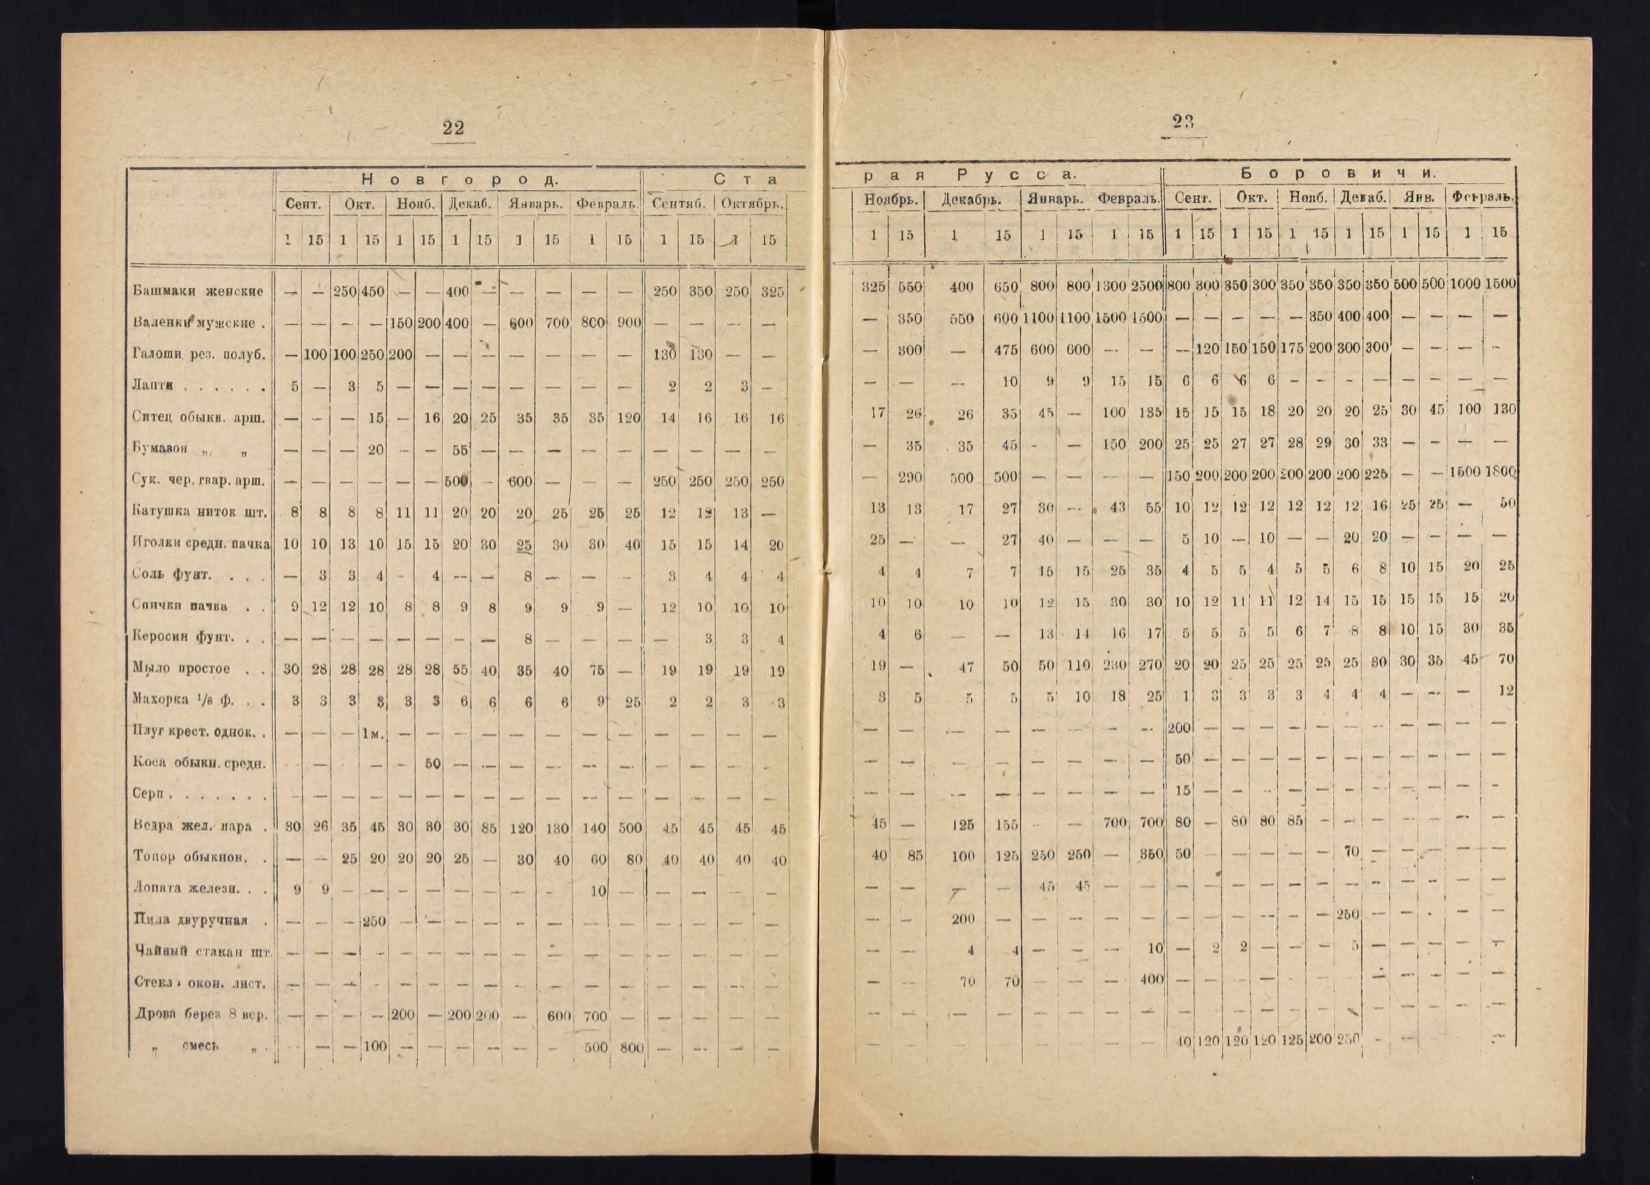 22
Новгород. Ста
Сент. Окт. Нояб. Декаб. Январь. Февраль. Сентяб. Октябрь.
1 15 1 15 1 15 1 15 1 15 1 15 1 15 1 15
Башмаки женские — — 250 450 — — 400 — — — — — 250 350 250 325
Валенки мужские . — — — — 150 200 400 — 600 700 800 900 — — — —
Галоши рез. полуб. — 100 100 250 200 — — — — — — — 130 130 — —
Лапти . . . . . . 5 — 3 5 — — — — — — — — 2 2 3 —
Ситец обыкн. арш. — — — 15 — 16 20 25 35 35 35 120 14 16 16 16
Бумазон „ „ — — — 20 — — 55 — — — — — — — — —
Сук. чер. гвар. арш. — — — — — — 500 — 600 — — — 250 250 250 250
Катушка ниток шт. 8 8 8 8 11 11 20 20 20 25 25 25 12 12 13 —
Иголки средн. пачка 10 10 13 10 15 15 20 30 25 30 30 40 15 15 14 20
Соль фунт. . . . — 3 3 4 - 4 — — 8 — — — 3 4 4 4
Спички пачка . . 9 12 12 10 8 8 9 8 9 9 9 — 12 10 10 10
Керосин фунт. . . — — — — — — — — 8 — — — — 3 3 4
Мыло простое . . 30 28 28 28 28 28 55 40 35 40 75 — 19 19 19 19
Махорка 1/8 ф. . . 3 3 3 3 3 3 6 6 6 6 9 25 2 2 3 3
Плуг крест. однок. . — — — 1м. — — — — — — — — — — — —
Коса обыкн. средн. - — - — - 50 — — — — — — — — — -
Серп . . . . . . . — — — — — — — — — — — — — — — -
Ведра жел. пара . 30 26 35 45 30 30 30 85 120 130 140 500 45 45 45 45
Топор обыкнон. . — — 25 20 20 20 25 — 30 40 60 80 40 40 40 40
Лопата железн. . . 9 9 — — — — — — — - 10 — — — — —
Пила двуручная . — — — 250 — — — — — — — — — — — —
Чайный стакан шт. — — — — — — — — — — — — — — — —
Стекло окон. лист. — — — - — — — — — — — — — — — —
Дрова берез 8 вер. — — — — 200 — 200 200 — 600 700 — — — — —
„ смесь „ . — — 100 — — — — — - 500 800 — — — —
23
рая Русса. Боровичи.
Ноябрь. Декабрь. Январь. Февраль. Сент. Окт. Нояб. Декаб. Янв. Февраль.
1 15 1 15 1 15 1 15 1 15 1 15 1 15 1 15 1 15 1 15
325 550 400 650 800 800 1300 2500 800 300 350 300 350 350 350 350 500 500 1000 1500
— 350 550 600 1100 1100 1500 1500 — — — — — 350 400 400 — — — —
— 300 — 475 600 600 — — — 120 150 150 175 200 300 300 — — — -
— — — 10 9 9 15 15 6 6 6 6 - — — — — — — —
17 26 26 35 45 — 100 135 15 15 15 18 20 20 20 25 30 45 100 130
— 35 35 45 - — 150 200 25 25 27 27 28 29 30 33 — — — —
— 290 500 500 — — — — 150 200 200 200 200 200 200 225 — — 1500 1800
13 13 17 27 30 — 43 55 10 12 12 12 12 12 12 16 25 25 — 50
25 — — 27 40 — — — 5 10 — 10 — — 20 20 — — — —
4 4 7 7 15 15 25 35 4 5 5 4 5 5 6 8 10 15 20 25
10 10 10 10 12 15 30 30 10 12 11 11 12 14 15 15 15 15 15 20
4 6 — — 13 14 16 17 5 5 5 5 6 7 8 8 10 15 30 35
19 — 47 50 50 110 230 270 20 20 25 25 25 25 25 30 30 35 45 70
3 5 5 5 5 10 18 25 1 3 3 3 3 4 4 4 — — — 12
— — — — — — — — 200 — — — — — — — — — — —
— — — — — — — — 50 — — — — — — — — — — —
— — — — — — — — 15 — — — — — — — — — — —
45 — 125 155 - — 700 700 80 — 80 80 85 - — — — — — —
40 85 100 125 250 250 — 350 50 — — — — — 70 — — — — —
— — — — 45 45 — — — — — — — — — — — — — —
— — 200 — — — — — — — — — — — 250 — — — — —
— — 4 4 — — — 10 — 2 2 — — — 5 — — — — —
— — 70 70 — — — 400 — — — — — — — — — —
— — — — — — — — — — — — — — — — — — — —
— — — — — — — — 40 120 120 120 125 200 250 - — —